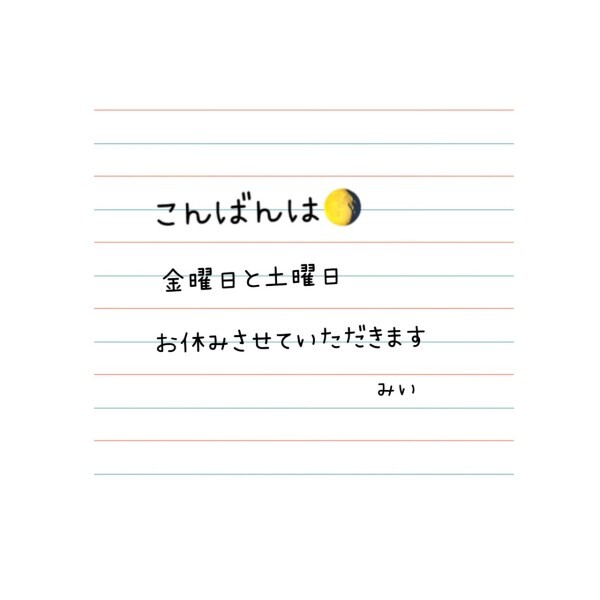 こんばんは🌖
金曜日と土曜日
お休みさせていただきます
みい